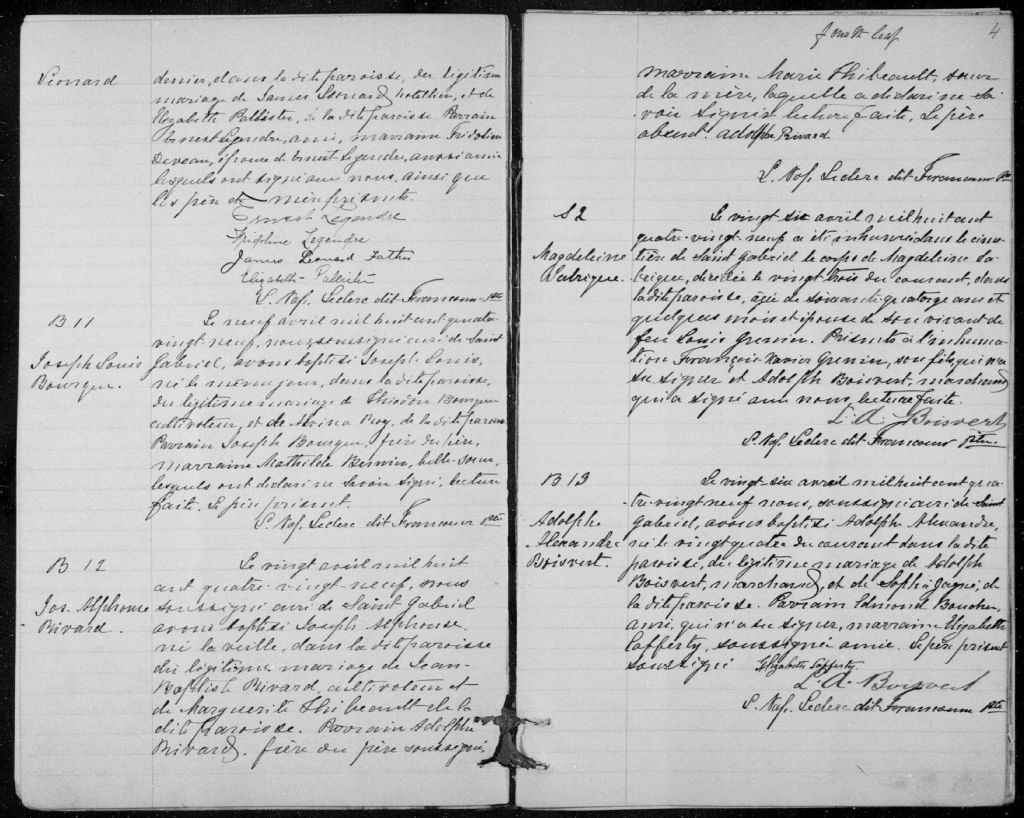 Leonard
dernier, dans la dite paroisse, du légitime
mariage de James Leonard, hotellier, et de
Elizabeth Pellitier, de la dite paroisse. Parrain
Ernest Legendre, ami, marraine Fridoline
Deveau, épouse de Ernest Legendre, aussi amie
lesquels ont signé avec nous, ainsi que
les père et mère présents.
Ernest Legendre
Fridoline Legendre
James Leonard Father
Elizabeth Pelletier
L. Nap. Leclerc dit Francœur Ptre
B 11
Joseph Louis
Bourque.
Le neuf avril mil huit cent quatre-
vingt neuf, nous soussigné curé de Saint
Gabriel, avons baptisé Joseph Louis,
né le même jour, dans la dite paroisse,
du légitime mariage de Bourque
cultivateur, et de Roy, de la dite paroisse
Parrain Joseph Bourque, frère du père,
marraine Mathilde belle-sœur,
lesquels ont déclaré ne savoir signer, lecture
faite. Le père présent.
L. Nap. Leclerc dit Francœur Ptre
B 12
Jos. Alphonse
Rivard.
Le vingt avril mil huit
cent quatre-vingt-neuf, nous
soussigné curé de Saint Gabriel
avons baptisé Joseph Alphonse,
né la veille, dans la dite paroisse
du légitime mariage de Jean-
Baptiste Rivard, cultivateur et
de Marguerite Thibeault de la
dite paroisse. Parrain Adolphe
Rivard, frère du père soussigné,
fourth leaf
4
marraine Marie Thibeault, sœur
de la mère, laquelle a déclaré ne sa-
voir signer lecture faite, Le père
absent. Adolphe Rivard
L. Nap. Leclerc dit Francœur Ptre
S 2
Magdeleine
Fabrique.
Le vingt six avril mil huit cent
quatre-vingt-neuf a été inhumé dans le cime-
tière de Saint Gabriel le corps de Magdeleine Fa-
brique, décédée le vingt trois du courant, dans
la dite paroisse, âgée de soixante-quatorze ans et
quelques mois et épouse de son vivant de
feu Louis Grenier. Présents à l'inhuma-
tion François-Xavier Grenier, son fils, qui n'a
su signer et Adolph Boisvert, marchand
qui a signé avec nous, lecture faite.
L. A. Boisvert
L. Nap. Leclerc dit Francœur Ptre.
B 13
Adolphe
Alexandre
Boisvert.
Le vingt-six avril mil huit cent qua-
tre-vingt neuf nous, soussigné curé de Saint
Gabriel, avons baptisé Adolphe Alexandre,
né le vingt quatre du courant dans la dite
paroisse, du légitime mariage de Adolph
Boisvert, marchand, et de Sophie Gagné, de
la dite paroisse. Parrain Edmond Boucher,
ami, qui n'a su signer, marraine Elizabeth
Lafferty, soussignée amie. Le père présent
soussigné Elizabeth Lafferty
L. A. Boisvert
L. Nap. Leclerc dit Francœur Ptre